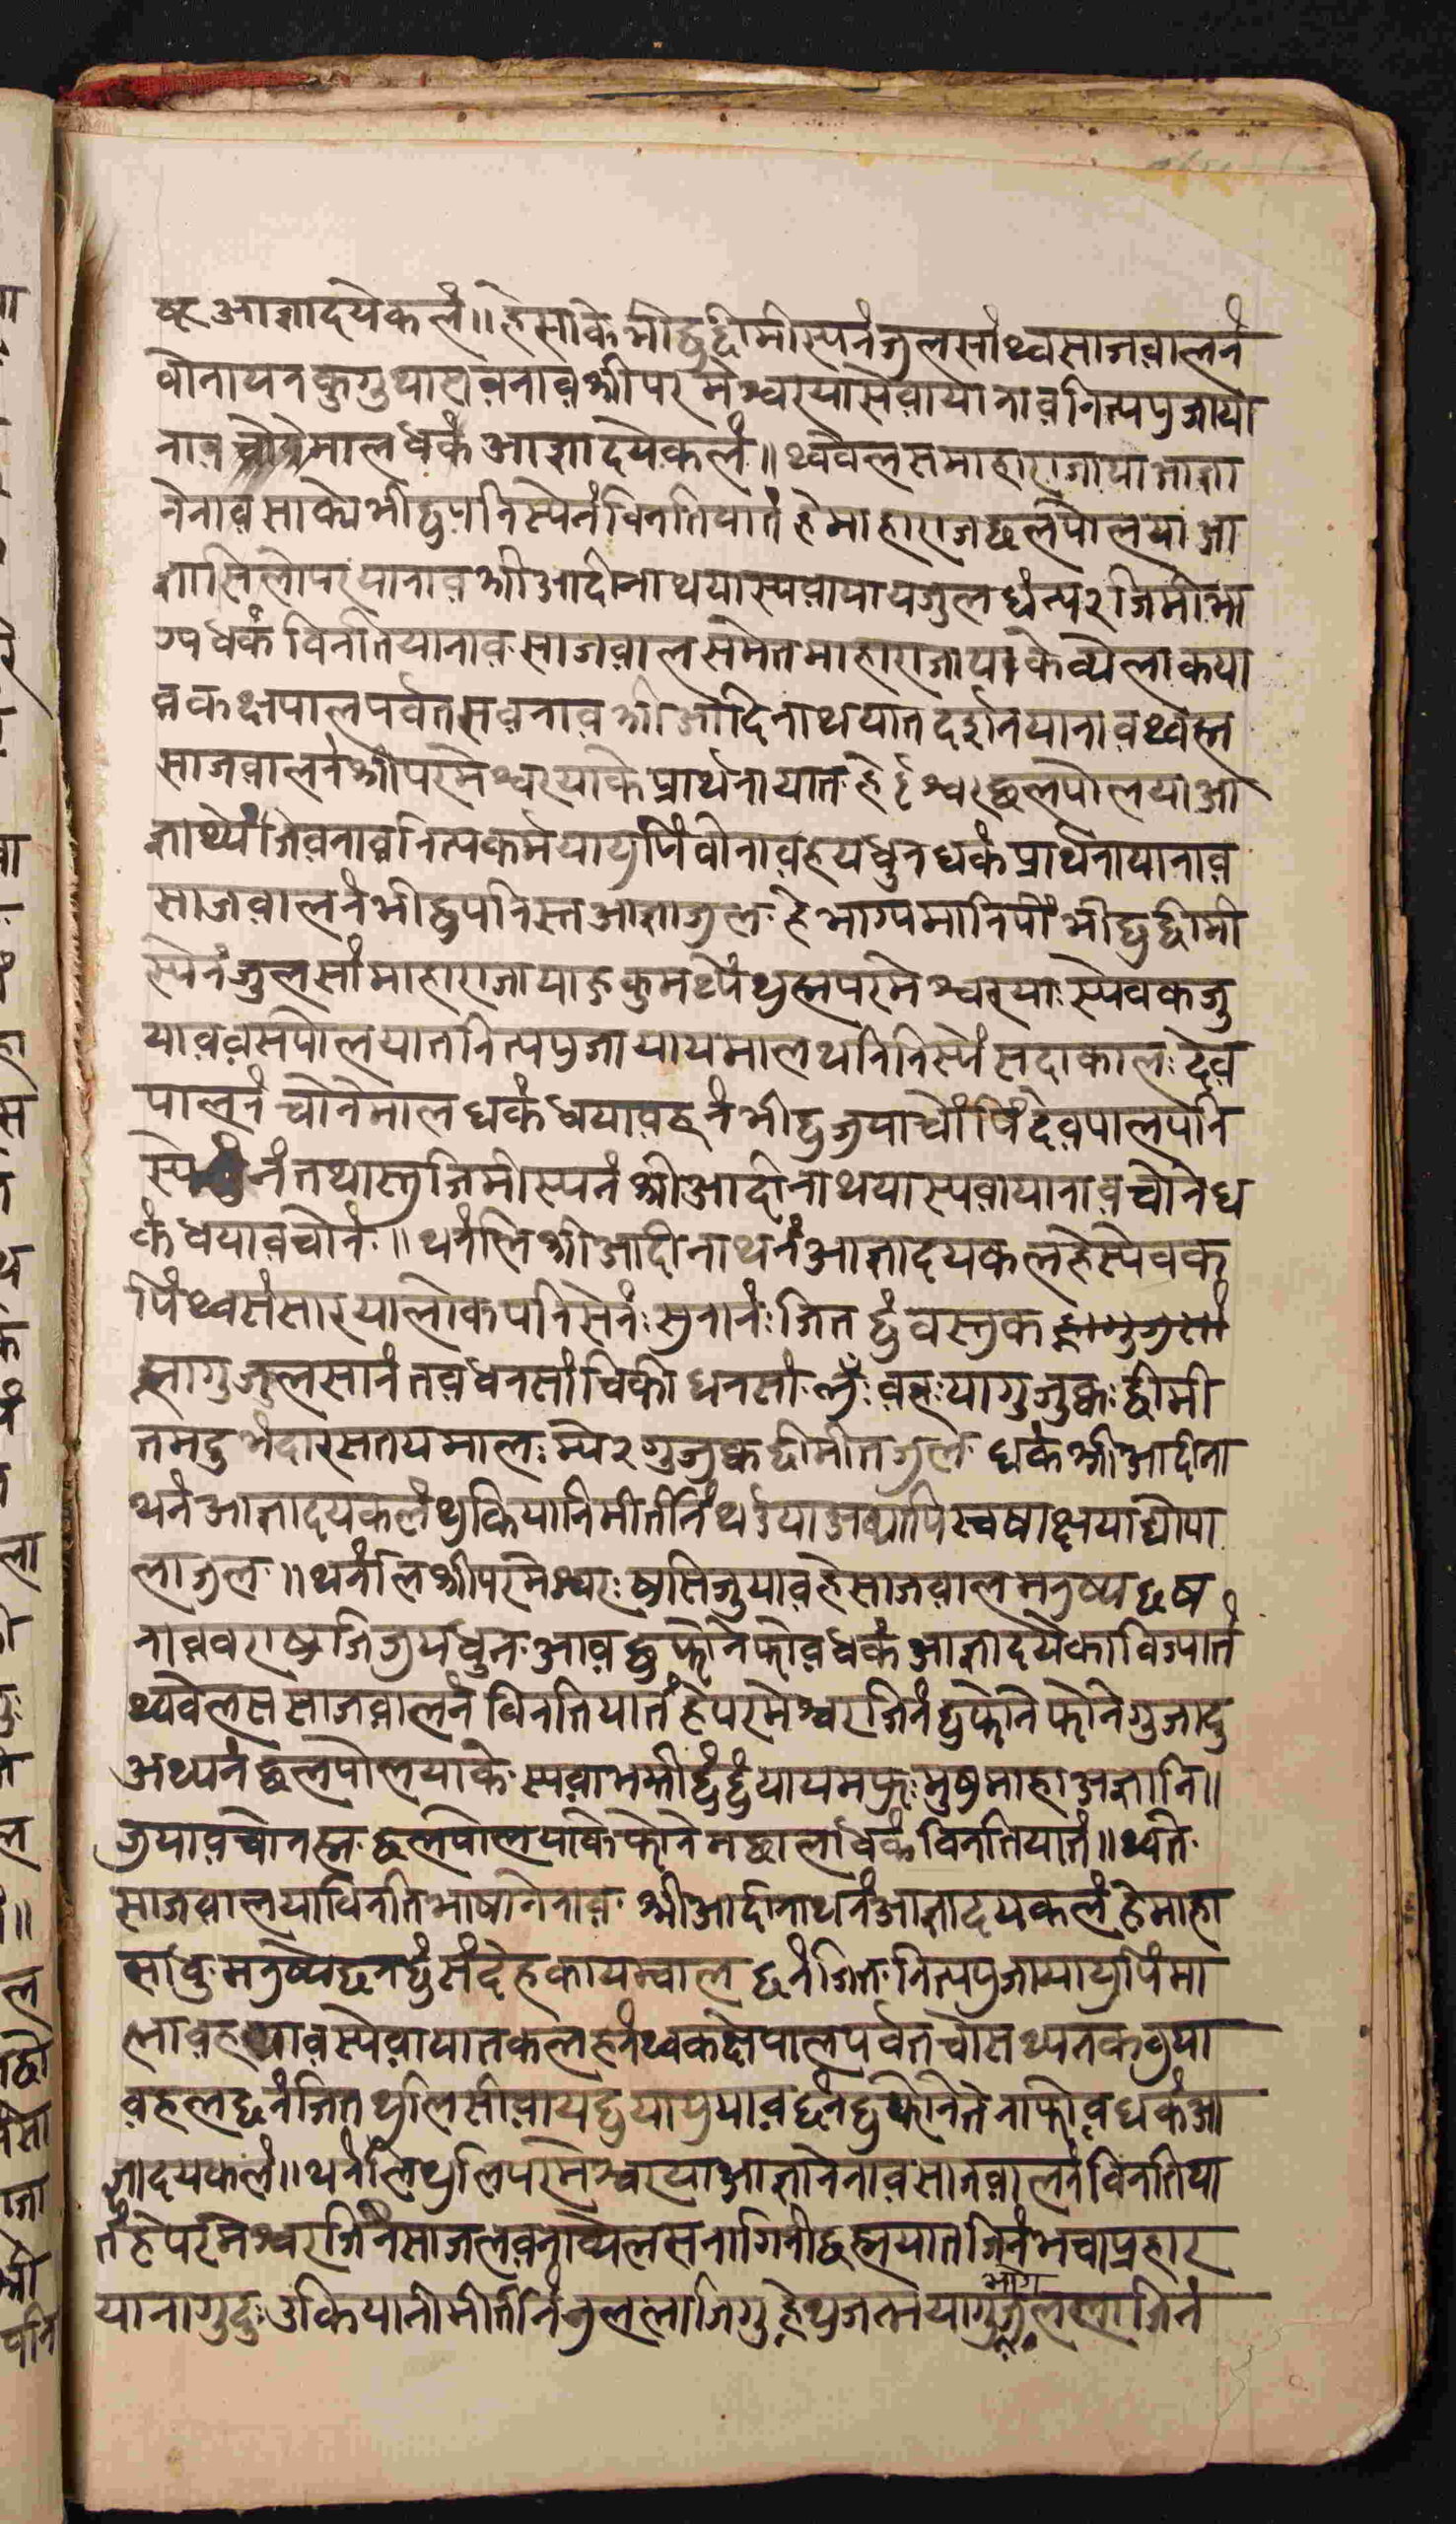 ष्ट आज्ञादयेकलं॥ हेसाके मीछुह्मिमीस्पनंजुलसांथ्वसाजवालनं
वोनायनकुगुथासवनावश्रीपरमेश्वरयासेवायानावनित्यपुजाया
नाव चोनेमालधकं आज्ञादयेकलं॥ थ्ववेलसमाहाराजाया आज्ञा
नेनावसाक्येभीछुपनिस्पेनंविनतियातं हेमाहाराजछलपोलया आ
ज्ञासिलोपरंयानावश्रीआदीनाथयास्यवायायजुलधंन्य२जिमीभा
ग्यधकं विनतियानाव साजवालसमेतमाहाराजायाके व्येलाकया
वकक्षपालपर्वतसवनावश्रीआदिनाथयातदर्शनयानावथ्वस्न
साजवालनंश्रीपरमेश्वरयाके प्रार्थनायात हेईश्वरछलपोलयाआ
ज्ञाथ्येंजिवनावनित्यकर्मयायपिंवोनावहयधुनधकंप्रार्थनायानाव
साजवालनंभीछुपनिस्तआज्ञाजुल हेभाग्यमानिपीं भीछुह्मिमी
स्पेनंजुलसांमाहाराजायाङकुमथ्येंथुह्मपरमेश्वरयाःस्पेवकजु
याववसपोलयातनित्यपुजायायमालथनिनिस्पेंसदाकालःदेव
पालनं चोनेमालधकंधयावहनंभीछुजुयाचोंपिंदेवपालपनि
स्पेनंतथास्तुजिमीस्पनंश्रीआदीनाथयास्यवायानावचोनेध
कंधयावचोनं॥ थनंलिश्रीआदीनाथनंआज्ञादयकलहेस्पेवक
पिंथ्वसंसारयालोकपनिसेनंःसुनानंःजित छुंवस्तुक
ह्मागुजुलसानंतवधनसांचिकीधनसांलुँःवहःयागुजुक्वःह्मिमी
तमदुभंदारसतयमालःम्ये२गुजुक्वह्मिमीतजुल धकंश्रीआदीना
थनंआज्ञादयकलंथुकियानिमीर्तीनिं थउँया अद्यापि
लाजुल॥ थनंलिश्रीपरमेश्वरःषुसिजुयावहेसाजवालमनुष्यछष
नाववराषुजिजुयधुन आवछुफोनेफोवधकंआज्ञादयेकाविज्यातं
थ्ववेलससाजवालनं विनतियातं हेपरमेश्वरजिनंछुफोनेफोनेगुजादु
अथ्यनंछलपोलयाके स्यवाभक्तीछुंछुंयायमफुःमुषमाहाअज्ञानि॥
जुयावचोनस्न छलपोलयाकेफोनेमछालाधकंविनतियातं॥ थ्वते
साजवालयाविनतिभाषानेनाव श्रीआदीनाथनंआज्ञादयकलं हेमाहा
साधु मनुष्यछनछुंसंदेहकायम्वाल छनंजित नित्यपुजायायुपिंमा
लावहयावस्पेवायातकलहनंथ्वकक्षेपालपर्वतचोसथ्यतकवुया
वहलछनंजितथुलिसीवायछुयायुयावछंनछुफोनेतेनाफोवधकंआ
ज्ञादयकलं॥ थनंलिथुलिपरमेश्वरयाआज्ञानेनावसाजवालनंविनतिया
तं हेपरमेश्वरजिनंसाजलेवनाव्यलसनागिनीछह्मयातजिनंभचाप्रहार
यानागुदुःउकियानीमीर्तीनिंजुललाजिगु हेथुजन्मयागुभोगजुललाजिनं